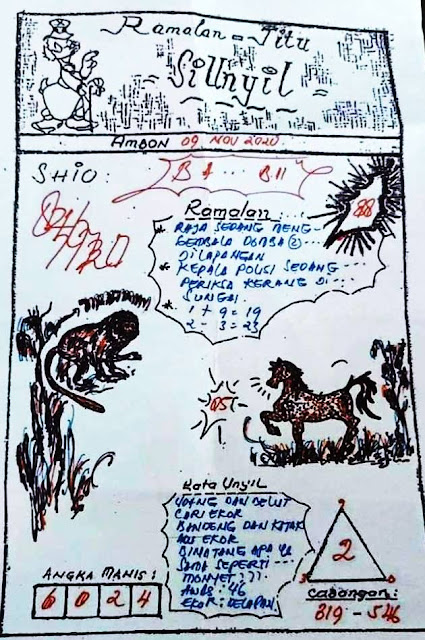 Ramalan - Jitu
"SiUnyil"
AMBON 09 NOV 2020
SHIO :
88
Ramalan :
* RAJA SEDANG MENG-
GEMBALA DOMBA 2
DILAPANGAN
* KEPALA POLISI SEDANG
PERIKSA KERANG DI
SUNGAI.
* 1 + 9 = 19
2 - 3 = 23
05
Kata Unyil
UDANG DAN BELUT
CARI EKOR
BANDENG DAN KATAK
ADU EKOR
BINATANG APA YG
SAMA SEPERTI
MONYET ???
AWAS : 46
EKOR : DELAPAN.
2
ANGKA MANIS :
6 0 2 4
Cabangan :
819 - 546